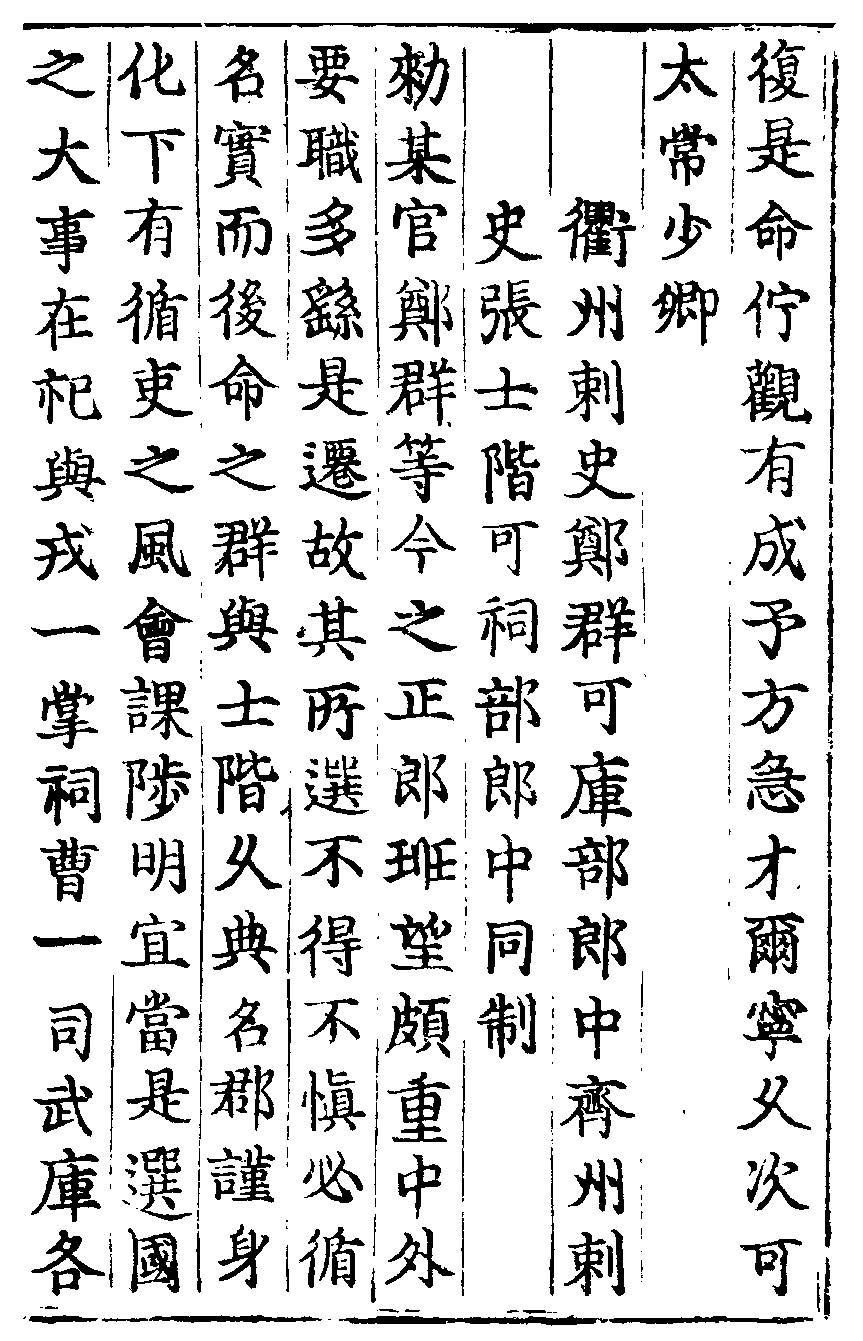 復是命佇觀有成予方急才爾寧久次可
太常少卿
衢州刺史鄭群可庫部郎中齊州刺
史張士階可祠部郎中同制
勑某官鄭群等今之正郎班望頗重中外
要職多繇是遷故其所選不得不慎必循
名實而後命之群與士階久典名郡謹身
化下有循吏之風會課陟明宜當是選國
之大事在祀與戎一掌祠曹一司武庫各